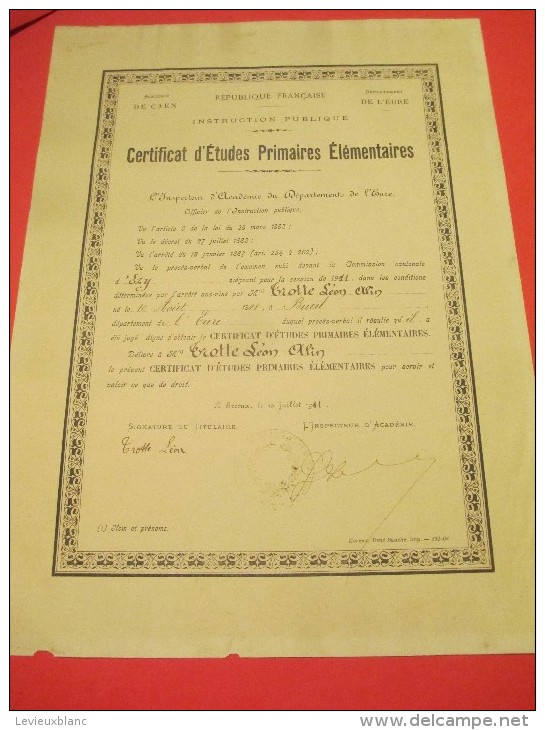 Académie
DE CAEN
RÉPUBLIQUE FRANÇAISE
Département
DE L'EURE
INSTRUCTION PUBLIQUE
Certificat d'Études Primaires Élémentaires
L'Inspecteur d'Académie du Département de l'Eure,
Officier de l'Instruction publique,
Vu l'article 6 de la loi du 28 mars 1882;
Vu le décret du 27 juillet 1882;
Vu l'arrêté du 18 janvier 1887 (art. 254 à 260);
Vu le procès-verbal de l'examen subi devant la Commission cantonale
d'Ezy siégeant pour la session de 1911, dans les conditions
déterminées par l'arrêté sus-visé par M Trotte Léon
né le 10 Août à Bueil
département de l'Eure duquel procès-verbal il résulte qu'il a
été jugé digne d'obtenir le CERTIFICAT D'ÉTUDES PRIMAIRES ÉLÉMENTAIRES.
Délivre à M Trotte Léon
le présent CERTIFICAT D'ÉTUDES PRIMAIRES ÉLÉMENTAIRES pour servir et
valoir ce que de droit.
A Evreux, le 10 juillet 1911.
SIGNATURE DU TITULAIRE
L'INSPECTEUR D'ACADÉMIE
Trotte Léon
(1) Nom et prénoms.
Levieuxblanc
http://www.delcampe.net